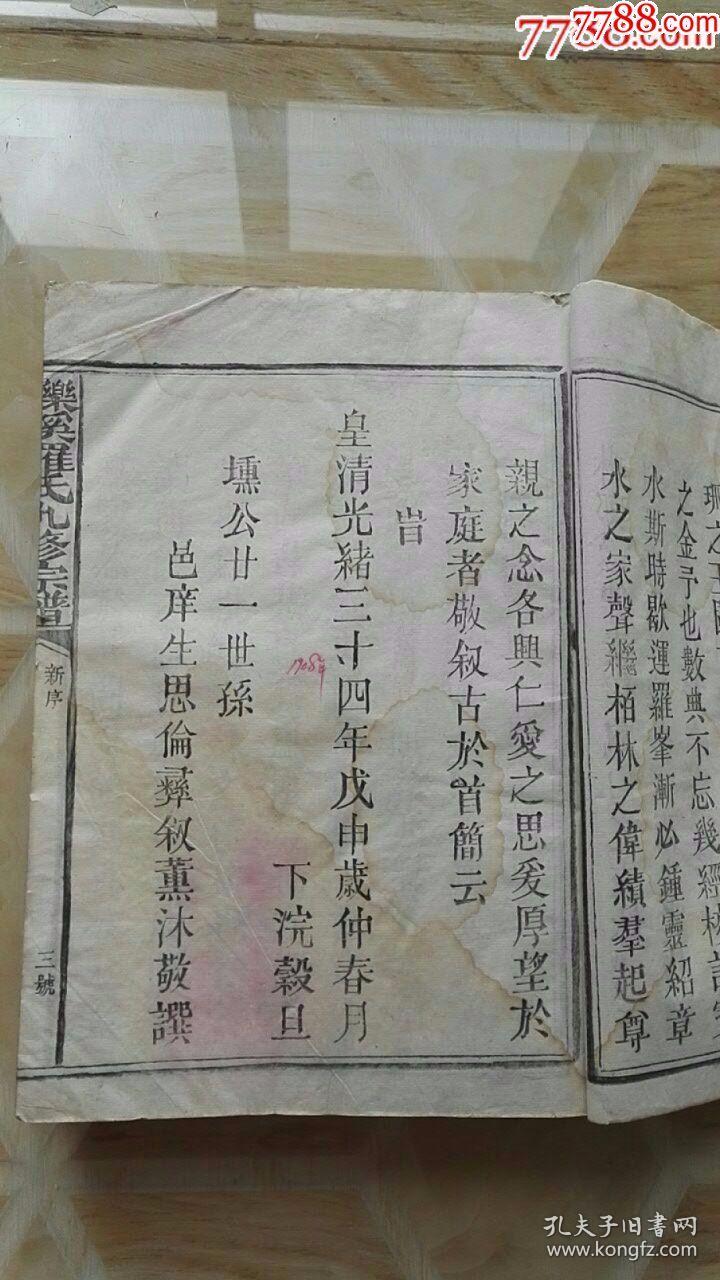 7788.com
7788.com
之金予也數典不忘幾經
水斯時歇運羅峯漸必鍾靈紹章
水之家聲繼栢林之偉績羣起尊
親之念各興仁愛之思爰厚望於
家庭者敬叙古於首簡云
旹
皇清光緒三十四年戊申歲仲春月
1908年
下浣穀旦
壎公廿一世孫
邑庠生思倫彞叙薰沐敬譔
樂溪羅氏九修宗譜
新序
三號
孔夫子旧书网
www.kongfz.com